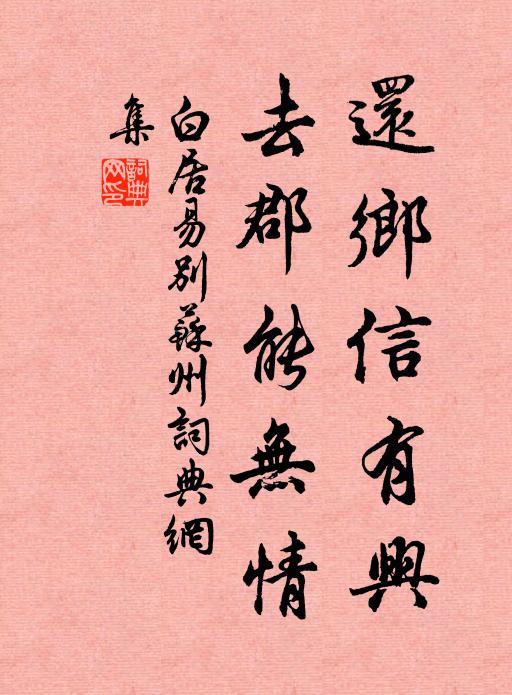 還鄉信有興
去郡能無情
白居易別蘇州詞典網
集
詞典
网印